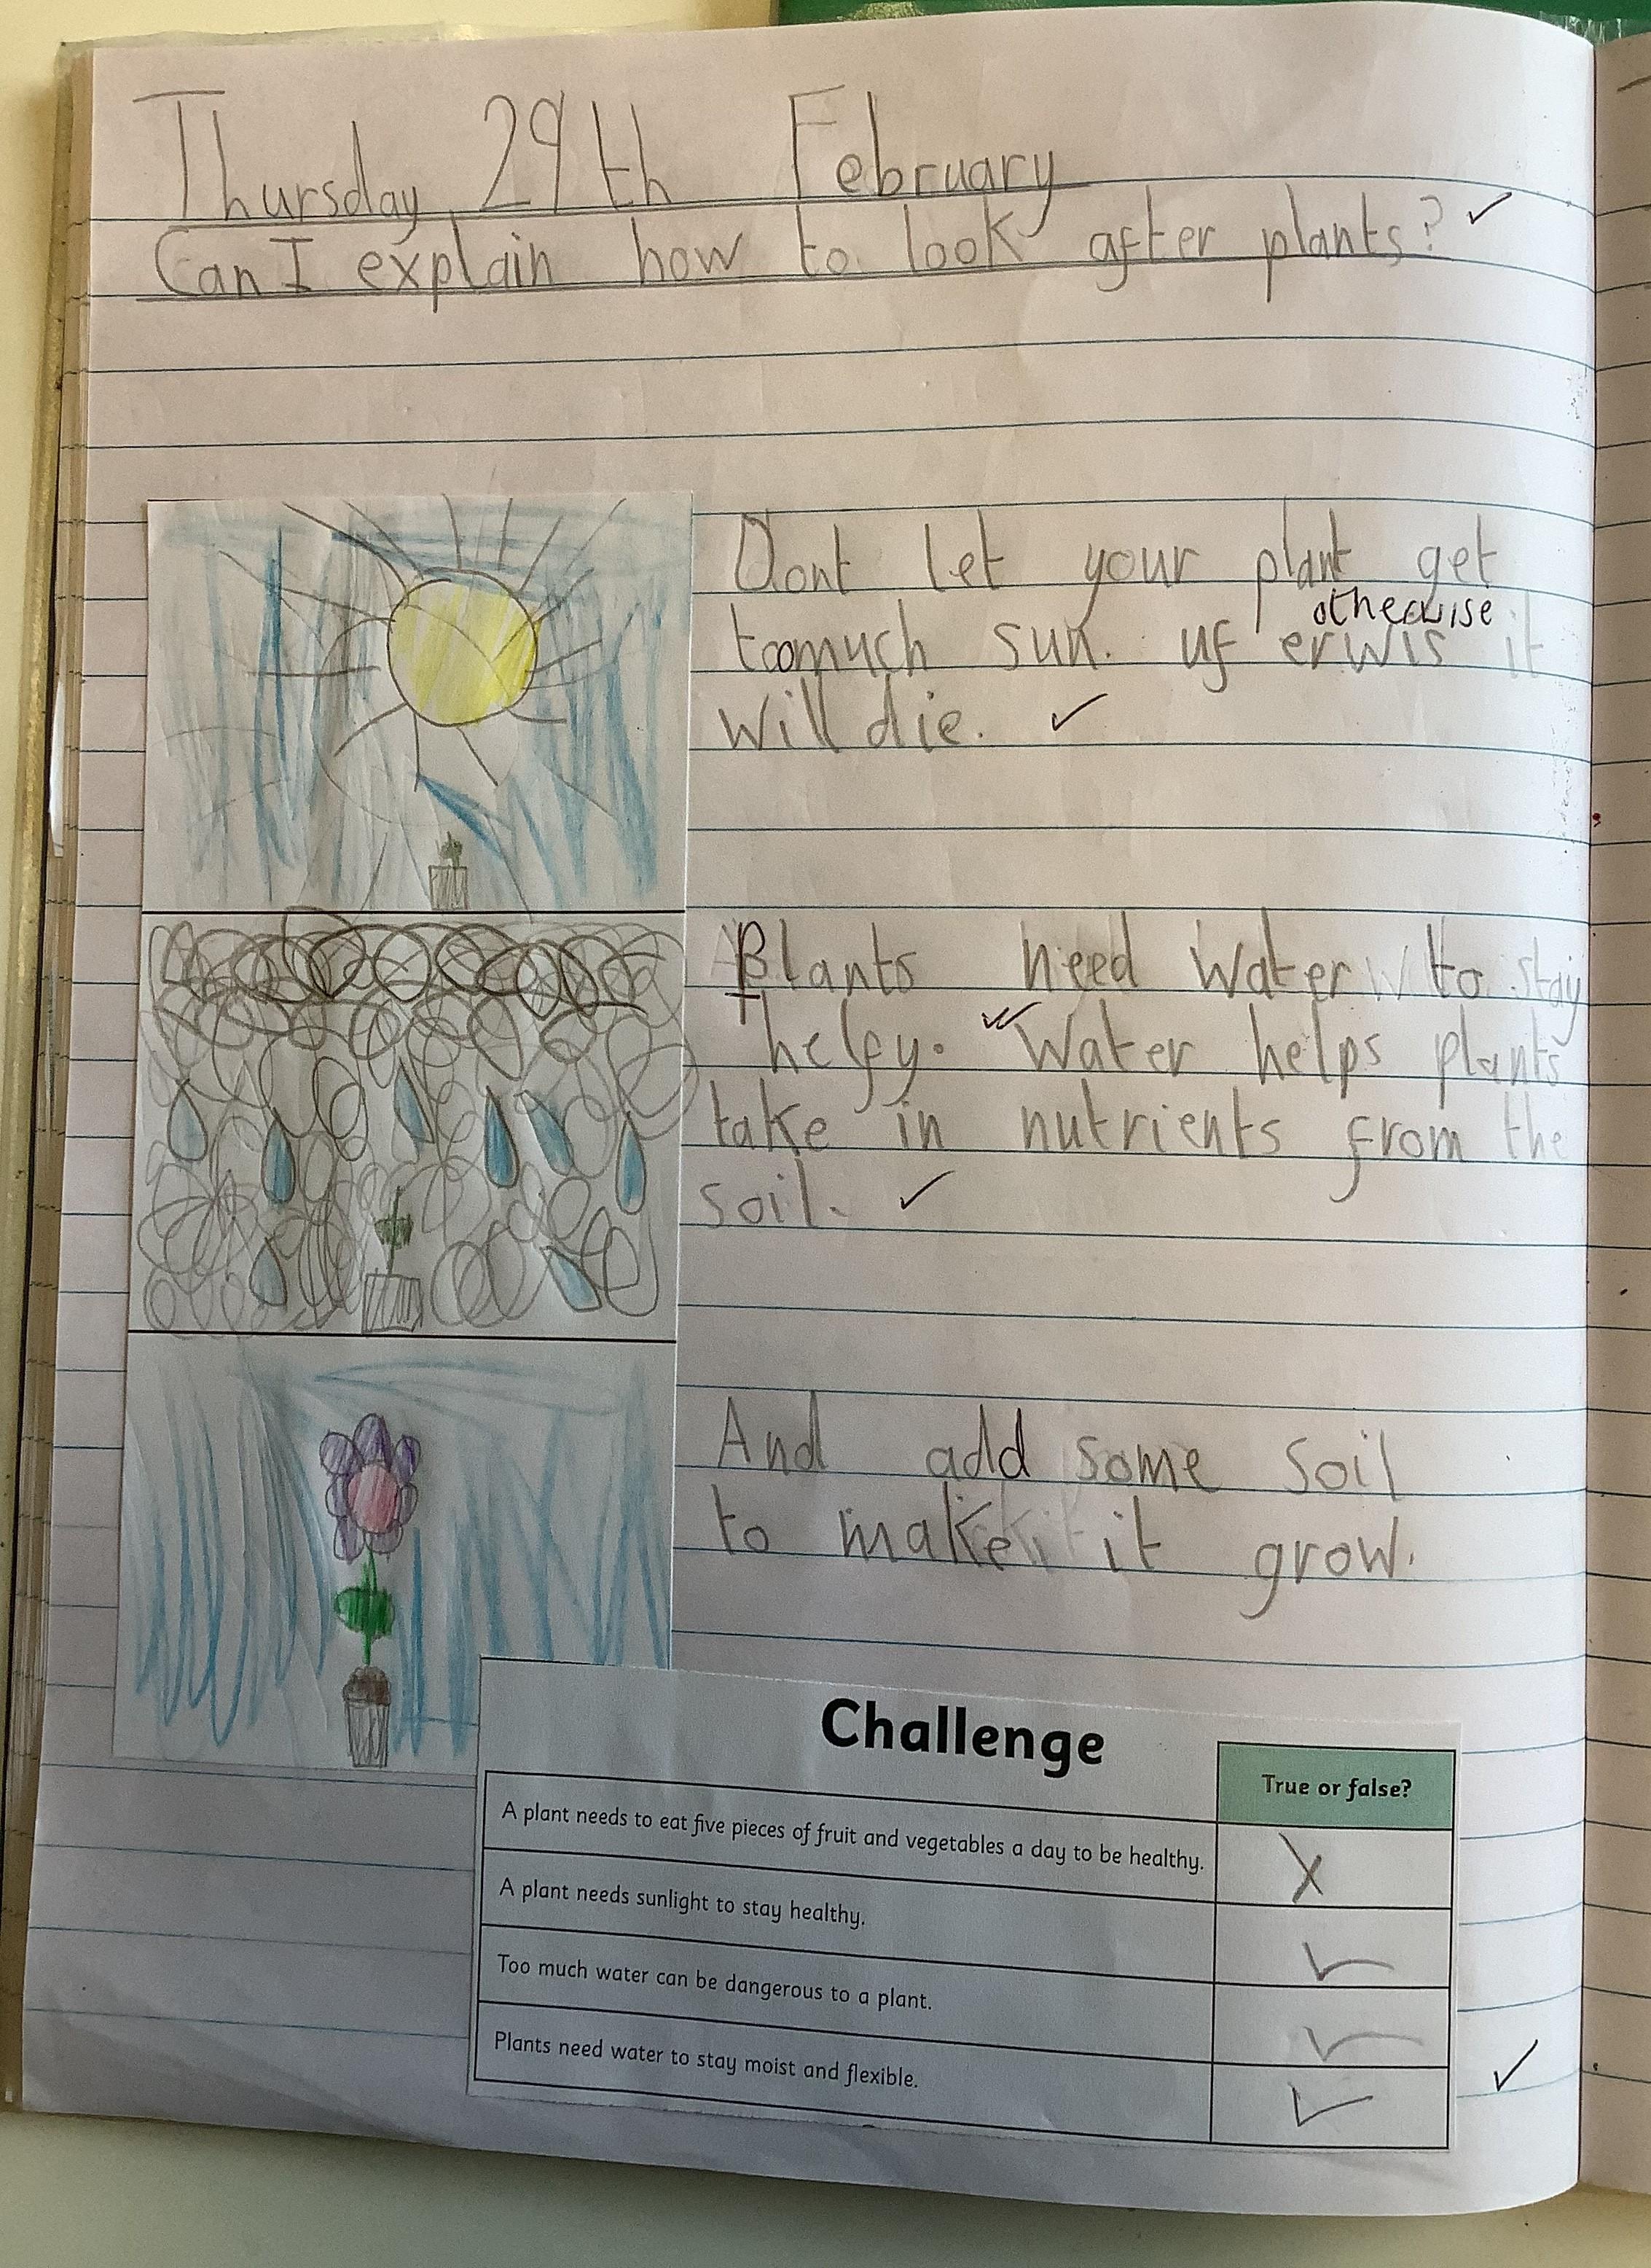 Thursday 29th February
Can I explain how to look after plants? ✓
Dont let your plant get
otherwise
toomuch sun. uf erwis it
will die. ✓
Plants need water to stay
helfy. ✓ Water helps plants
take in nutrients from the
soil. ✓
And add some soil
to make it grow.
Challenge
True or false?
A plant needs to eat five pieces of fruit and vegetables a day to be healthy. X
A plant needs sunlight to stay healthy. ✓
Too much water can be dangerous to a plant. ✓
Plants need water to stay moist and flexible. ✓ ✓